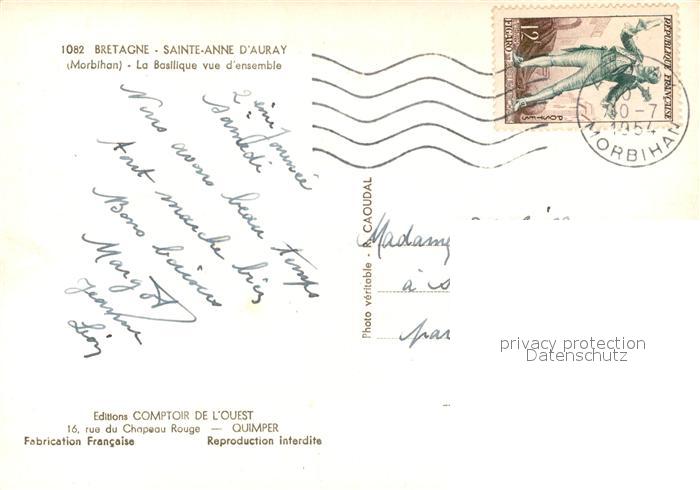 1082 BRETAGNE - SAINTE-ANNE D'AURAY
(Morbihan) - La Basilique vue d'ensemble
2ème journée
Samedi
Nous avons beau temps
Tout marche bien
Bons baisers
Margot
Jeanne
Léon
12F
FIGARO
RÉPUBLIQUE FRANÇAISE
POSTES
10-7
1954
MORBIHAN
Photo véritable - R. CAOUDAL
Madame
à
par
privacy protection
Datenschutz
Editions COMPTOIR DE L'OUEST
16, rue du Chapeau Rouge — QUIMPER
Fabrication Française Reproduction interdite